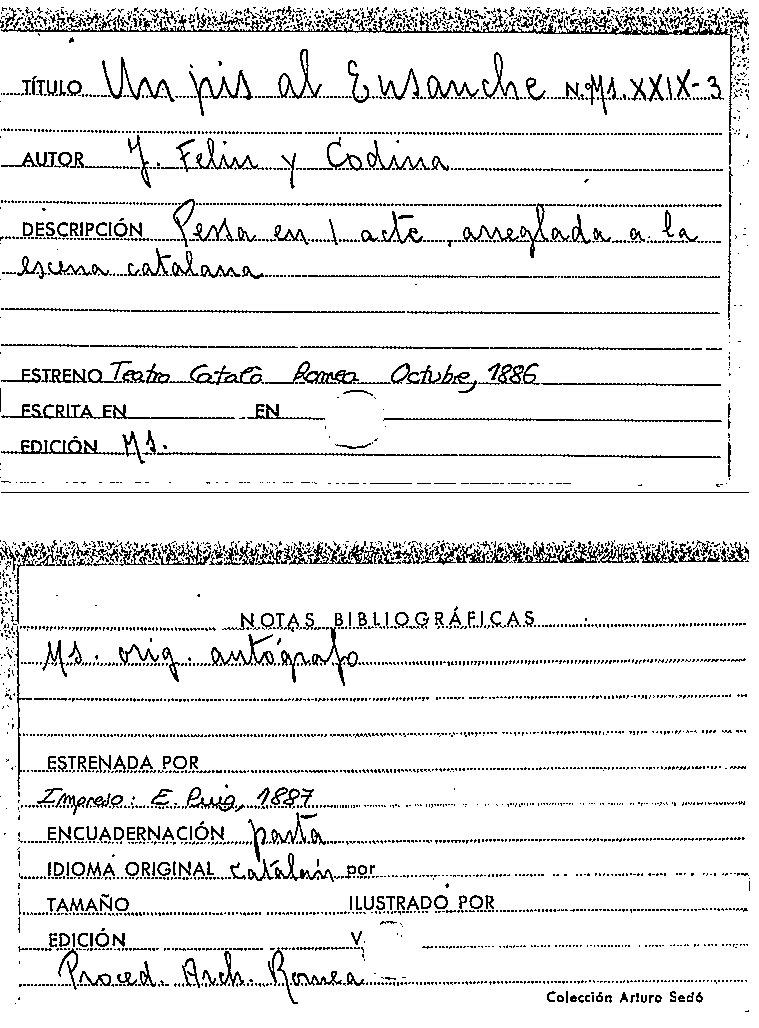 TÍTULO Un pis al Ensanche N.Ms. XXIX-3
AUTOR J. Feliu y Codina
DESCRIPCIÓN Pessa en 1 acte, arreglada a la
escena catalana
ESTRENO Teatro Catalá Romea Octubre, 1886
ESCRITA EN EN
EDICIÓN Ms.
NOTAS BIBLIOGRÁFICAS
Ms. orig. autógrafo
ESTRENADA POR
Impreso: E. Puig, 1887
ENCUADERNACIÓN pasta
IDIOMA ORIGINAL catalán por
TAMAÑO ILUSTRADO POR
EDICIÓN V.
Proced. Arch. Romea
Colección Arturo Sedó